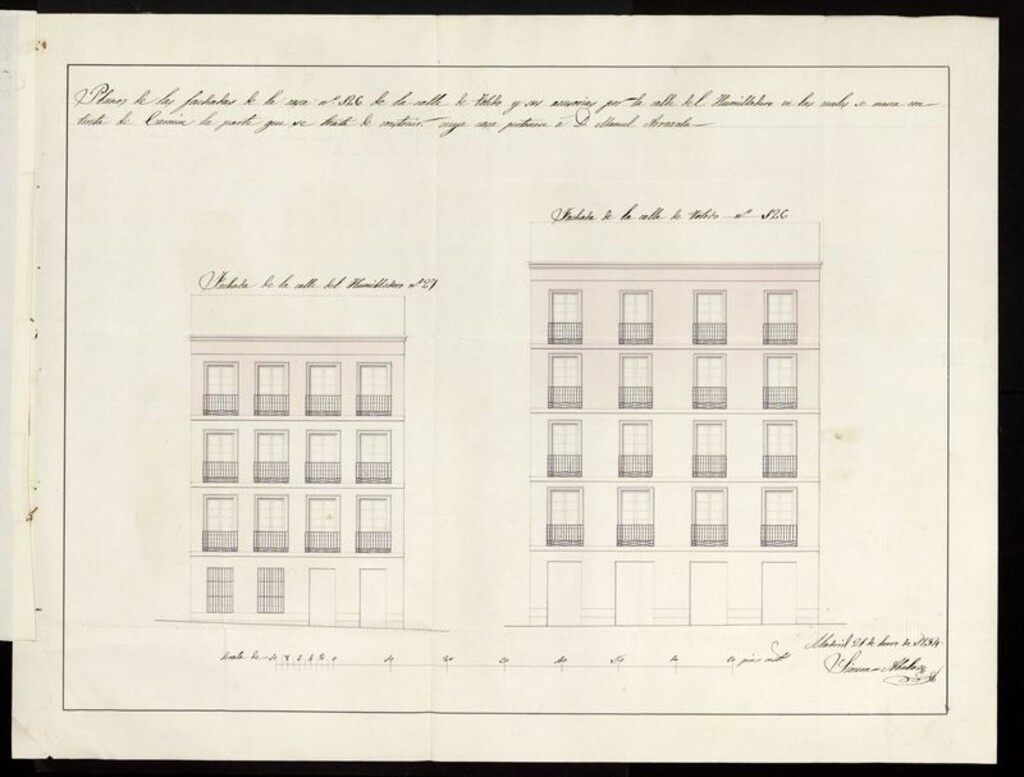 Planos de las fachadas de la casa nº 126 de la calle de Toledo y sus accesorias por la calle del Humilladero en las cuales se marca con
tinta de Carmin la parte que se trata de construir, cuya casa pertenece á D. Manuel
Fachada de la calle de Toledo nº 126
Fachada de la calle del Humilladero nº 27
Escala de
pies
Madrid 21 de Enero de
Simeon